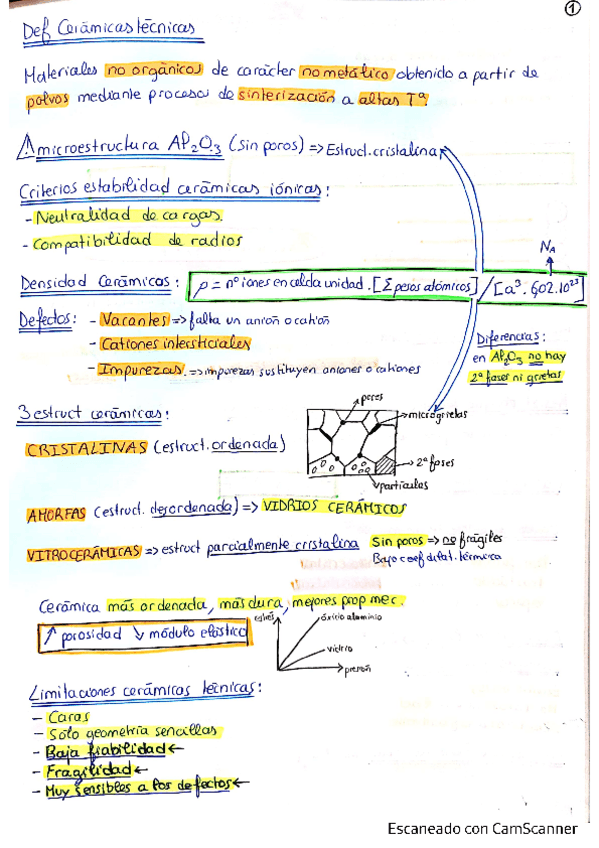 1
Def Cerámicas técnicas
Materiales no orgánicos de carácter no metálico obtenido a partir de
polvos mediante procesos de sinterización a altas Tª.
⚠ microestructura Al2O3 (sin poros) => Estruct. cristalina
Criterios estabilidad cerámicas iónicas:
- Neutralidad de cargas.
- Compatibilidad de radios
NA
Densidad Cerámicas: ρ = nº iones en celda unidad . [Σ pesos atómicos] / [a³ . 6,02.10²³]
Defectos: - Vacantes => falta un anión o catión
- Cationes intersticiales
- Impurezas. => impurezas sustituyen aniones o cationes
Diferencias:
en Al2O3 no hay
2ª fases ni grietas
3 estruct cerámicas:
poros
microgrietas
CRISTALINAS (estruct. ordenada)
2ª fases
partículas
AMORFAS (estruct. desordenada) => VIDRIOS CERÁMICOS
VITROCERÁMICAS => estruct parcialmente cristalina Sin poros => no frágiles
Bajo coef dilat. térmica
Cerámica más ordenada, más dura, mejores prop mec.
óxido aluminio
↑ porosidad ↓ módulo elástico
vidrio
presión
Limitaciones cerámicas técnicas:
- Caras
- Sólo geometría sencillas
- Baja fiabilidad ←
- Fragilidad ←
- Muy sensibles a los defectos ←
Escaneado con CamScanner